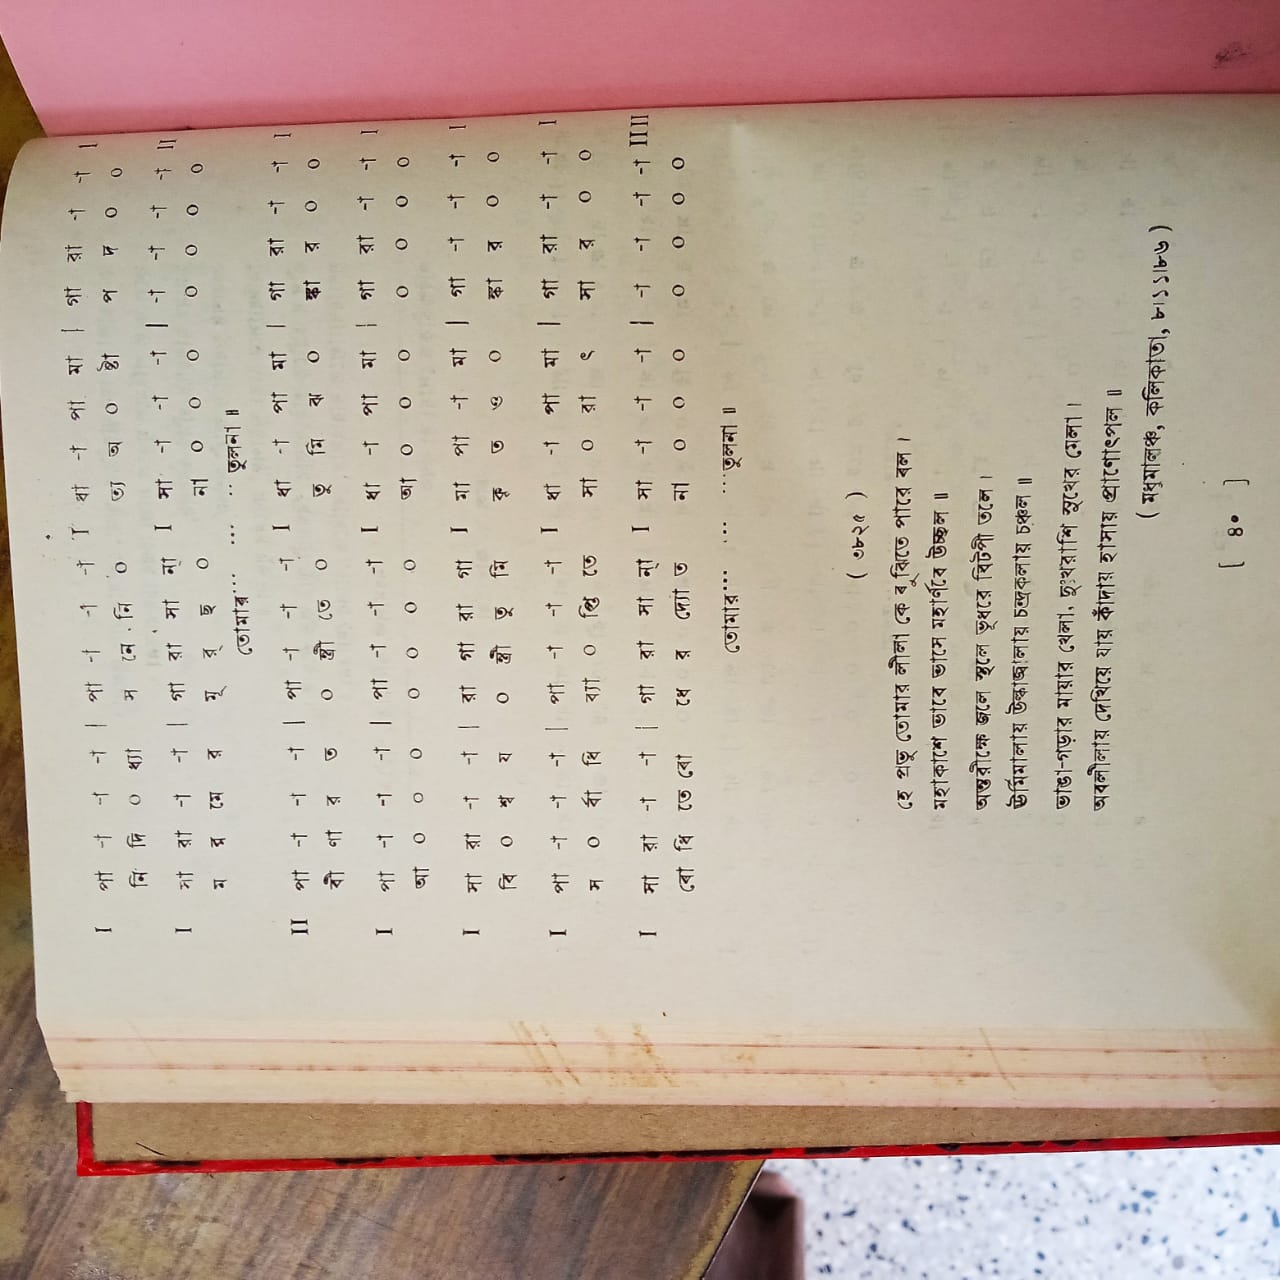 I পা -া -া -া | পা -া -া -া I ধা -া পা মা | গা রা -া -া I
নি দি ০ ধ্যা স নে নি ০ ত্য অ ০ ষ্টা প দ ০ ০
I সা রা -া -া | গা রা সা ন্া I সা -া -া -া | -া -া -া -া II
ম র মে র মূ র্ ছ ০ না ০ ০ ০ ০ ০ ০ ০
তোমার… … … তুলনা ॥
II পা -া -া -া | পা -া -া -া I ধা -া পা মা | গা রা -া -া I
বী ণা র ত ০ ন্ত্রী তে ০ তু মি ঝ ০ ঙ্কা র ০ ০
I পা -া -া -া | পা -া -া -া I ধা -া পা মা | গা রা -া -া I
আ ০ ০ ০ ০ ০ ০ ০ আ ০ ০ ০ ০ ০ ০ ০
I সা রা -া -া | রা গা রা গা I মা পা -া মা | গা -া -া -া I
বি ০ শ্ব য ০ ন্ত্রী তু মি কৃ ত ও ০ ঙ্কা র ০ ০
I পা -া -া -া | পা -া -া -া I ধা -া পা মা | গা রা -া -া I
স ০ র্বা ধি ব্যা ০ প্তি তে সা ০ রা ৎ সা র ০ ০
I সা রা -া -া | গা রা সা ন্া I সা -া -া -া | -া -া -া -া II II
বো ধি তে বো ধে র দ্যো ত না ০ ০ ০ ০ ০ ০ ০
তোমার… … … তুলনা ॥
( ৩৮২৫ )
হে প্রভু তোমার লীলা কে বুঝিতে পারে বল ।
মহাকাশে ভাবে ভাসে মহার্ণবে উচ্ছল ॥
অন্তরীক্ষে জলে স্থলে ভূধরে বিটপী তলে ।
ঊর্মিমালায় উল্কাজ্বালায় চন্দ্রকলায় চঞ্চল ॥
ভাঙা-গড়ার মায়ার খেলা, দুঃখরাশি সুখের মেলা ।
অবলীলায় দেখিয়ে যায় কাঁদায় হাসায় প্রাণোৎপল ॥
( মধুমালঞ্চ, কলিকাতা, ৮।১১।৮৬ )
[ ৪০ ]